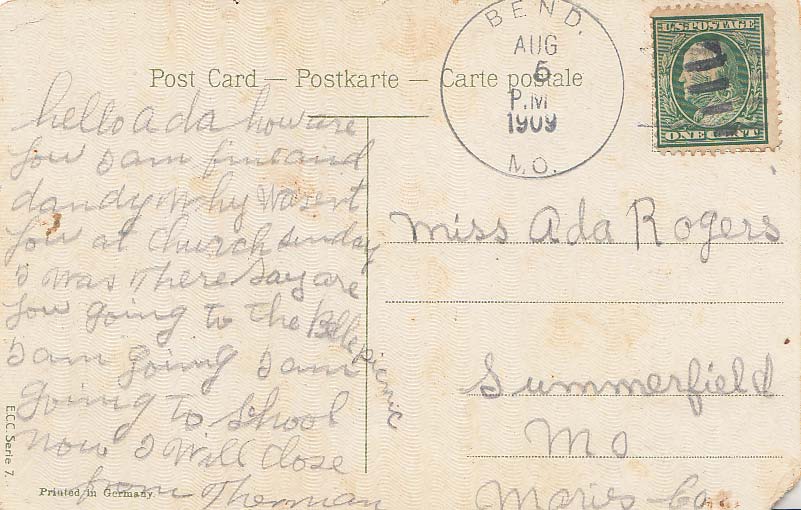 BEND.
AUG
5
P.M
1909
MO.
U.S. POSTAGE
ONE CENT
Post Card — Postkarte — Carte postale
hello Ada how are
you I am fine and
dandy why wasent
you at church sunday
I was there say are
you going to the Belle picnic
I am going I am
going to school
now I will close
from Therman
Miss Ada Rogers
Summerfield
Mo
Maries Co.
E.C.C. Serie 7.
Printed in Germany.